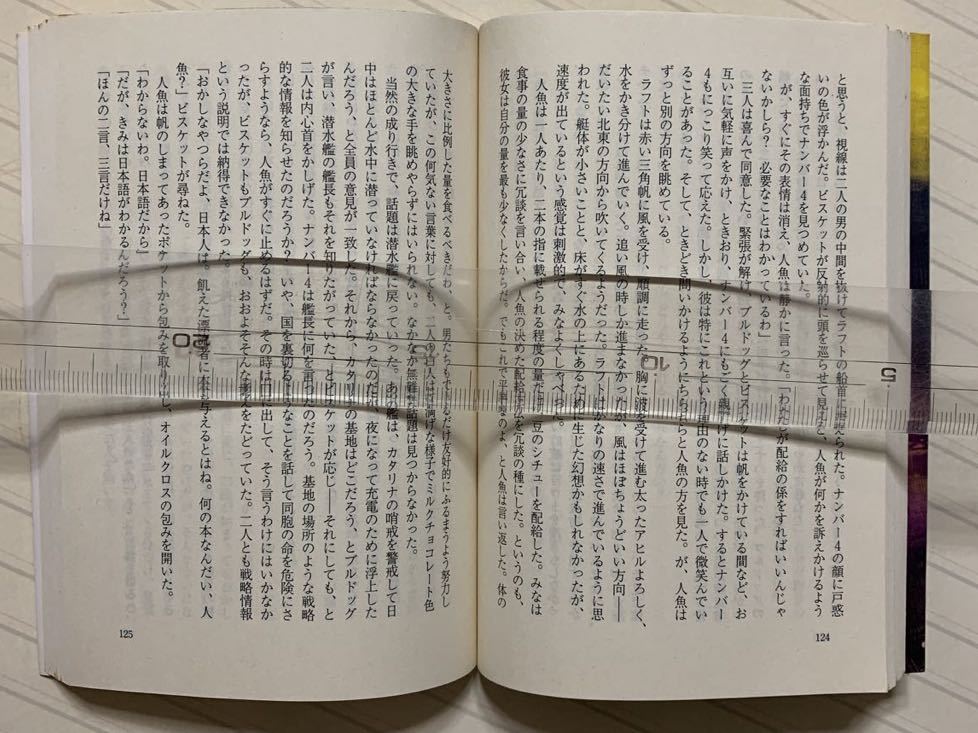 と思うと、視線は二人の男の中間を抜けてラフトの船首に
られた。ナンバー4の顔に戸惑
いの色が浮かんだ。ビスケットが反射的に頭を巡らせて見ると、人魚が何かを訴えかけるよう
な面持ちでナンバー4を見つめていた。
が、すぐにその表情は消え、人魚は静かに言った。「わたしが配給の係をすればいいんじゃ
ないかしら? 必要なことはわかっているわ」
三人は喜んで同意した。緊張が解け、ブルドッグとビスケットは帆をかけている間など、お
互いに気軽に声をかけ、ときおり、ナンバー4にもごく親しげに話しかけた。するとナンバー
4もにっこり笑って応えた。しかし、彼は特にこれという理由のない時でも一人で微笑んでい
ることがあった。そして、ときどき問いかけるようにちらちらと人魚の方を見た。が、人魚は
ずっと別の方向を眺めている。
ラフトは赤い三角帆に風を受け、順調に走った。胸に波を受けて進む太ったアヒルよろしく、
水をかき分けて進んでいく。追い風の時しか進まなかったが、風はほぼちょうどいい方向――
だいたい北東の方向から吹いてくるようだった。ラフトはかなりの速さで進んでいるように思
われた。艇体が小さいことと、床がすぐ水の上にあるために生じた幻想かもしれなかったが、
速度が出ているという感覚は刺激的で、みなよくしゃべった。
人魚は一人あたり、二本の指に載せられる程度の量だけ豆のシチューを配給した。みなは
食事の量の少なさに冗談を言い合い、人魚の決めた配給方法を冗談の種にした。というのも、
彼女は自分の量を最も少なくしたからだ。でもこれで平等なのよ、と人魚は言い返した。体の
124
大きさに比例した量を食べるべきだわ、と。男たちもできるだけ友好的にふるまうよう努力し
ていたが、この何気ない言葉に対しても、二人の白人は
げな様子でミルクチョコレート色
の大きな手を眺めやらずにはいられない。なかなか無難な話題は見つからなかった。
当然の成り行きで、話題は潜水艦に戻っていった。あの潜水艦は、カタリナの哨戒を警戒して日
中はほとんど水中に潜っていなければならなかったのだし、夜になって充電のために浮上した
んだろう、と全員の意見が一致した。それから、カタリナの基地はどこだろう、とブルドッグ
が言い、潜水艦の艦長もそれを知りたがっていた、とビスケットが応じ――それにしても、と
二人は内心首をかしげた。ナンバー4は艦長に何を言ったのだろう。基地の場所のような戦略
的な情報を知らせたのだろうか? いや、国を裏切るようなことを話して同胞の命を危険にさ
らすようなら、人魚がすぐに止めるはずだ。その時は口に出して、そう言うわけにはいかなか
ったが、ビスケットもブルドッグも、おおよそそんな考えをたどっていた。二人とも戦略情報
という説明では納得できなかった。
「おかしなやつらだよ、日本人は。飢えた漂流者に本を与えるとはね。何の本なんだい、人
魚?」ビスケットが尋ねた。
人魚は帆のしまってあったポケットから包みを取り出し、オイルクロスの包みを開いた。
「わからないわ。日本語だから」
「だが、きみは日本語がわかるんだろう?」
「ほんの二言、三言だけね」
125
5
10
20